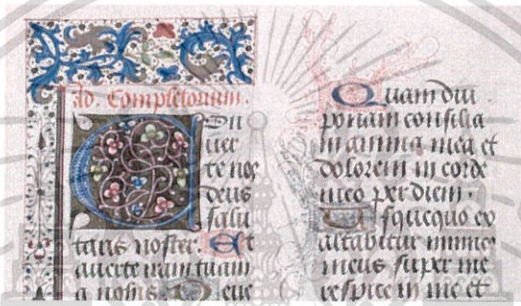 Ad. Completorium.
Con
uer
te nos
deus
salu
taris noster. Et
auerte iram tuam
a nobis. Deus
Quam diu
ponam consilia
in anima mea et
dolorem in corde
meo per diem.
Usquequo ex
altabitur
meus super me
respice in me et